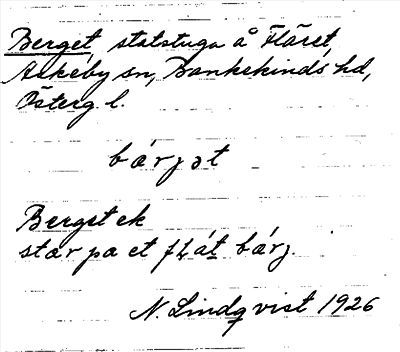 Berget, statstuga å Fläret,
Askeby sn, Bankekinds hd,
Österg l.
bárjət
Bergstek
stær pa et flát bárj.
N. Lindqvist 1926